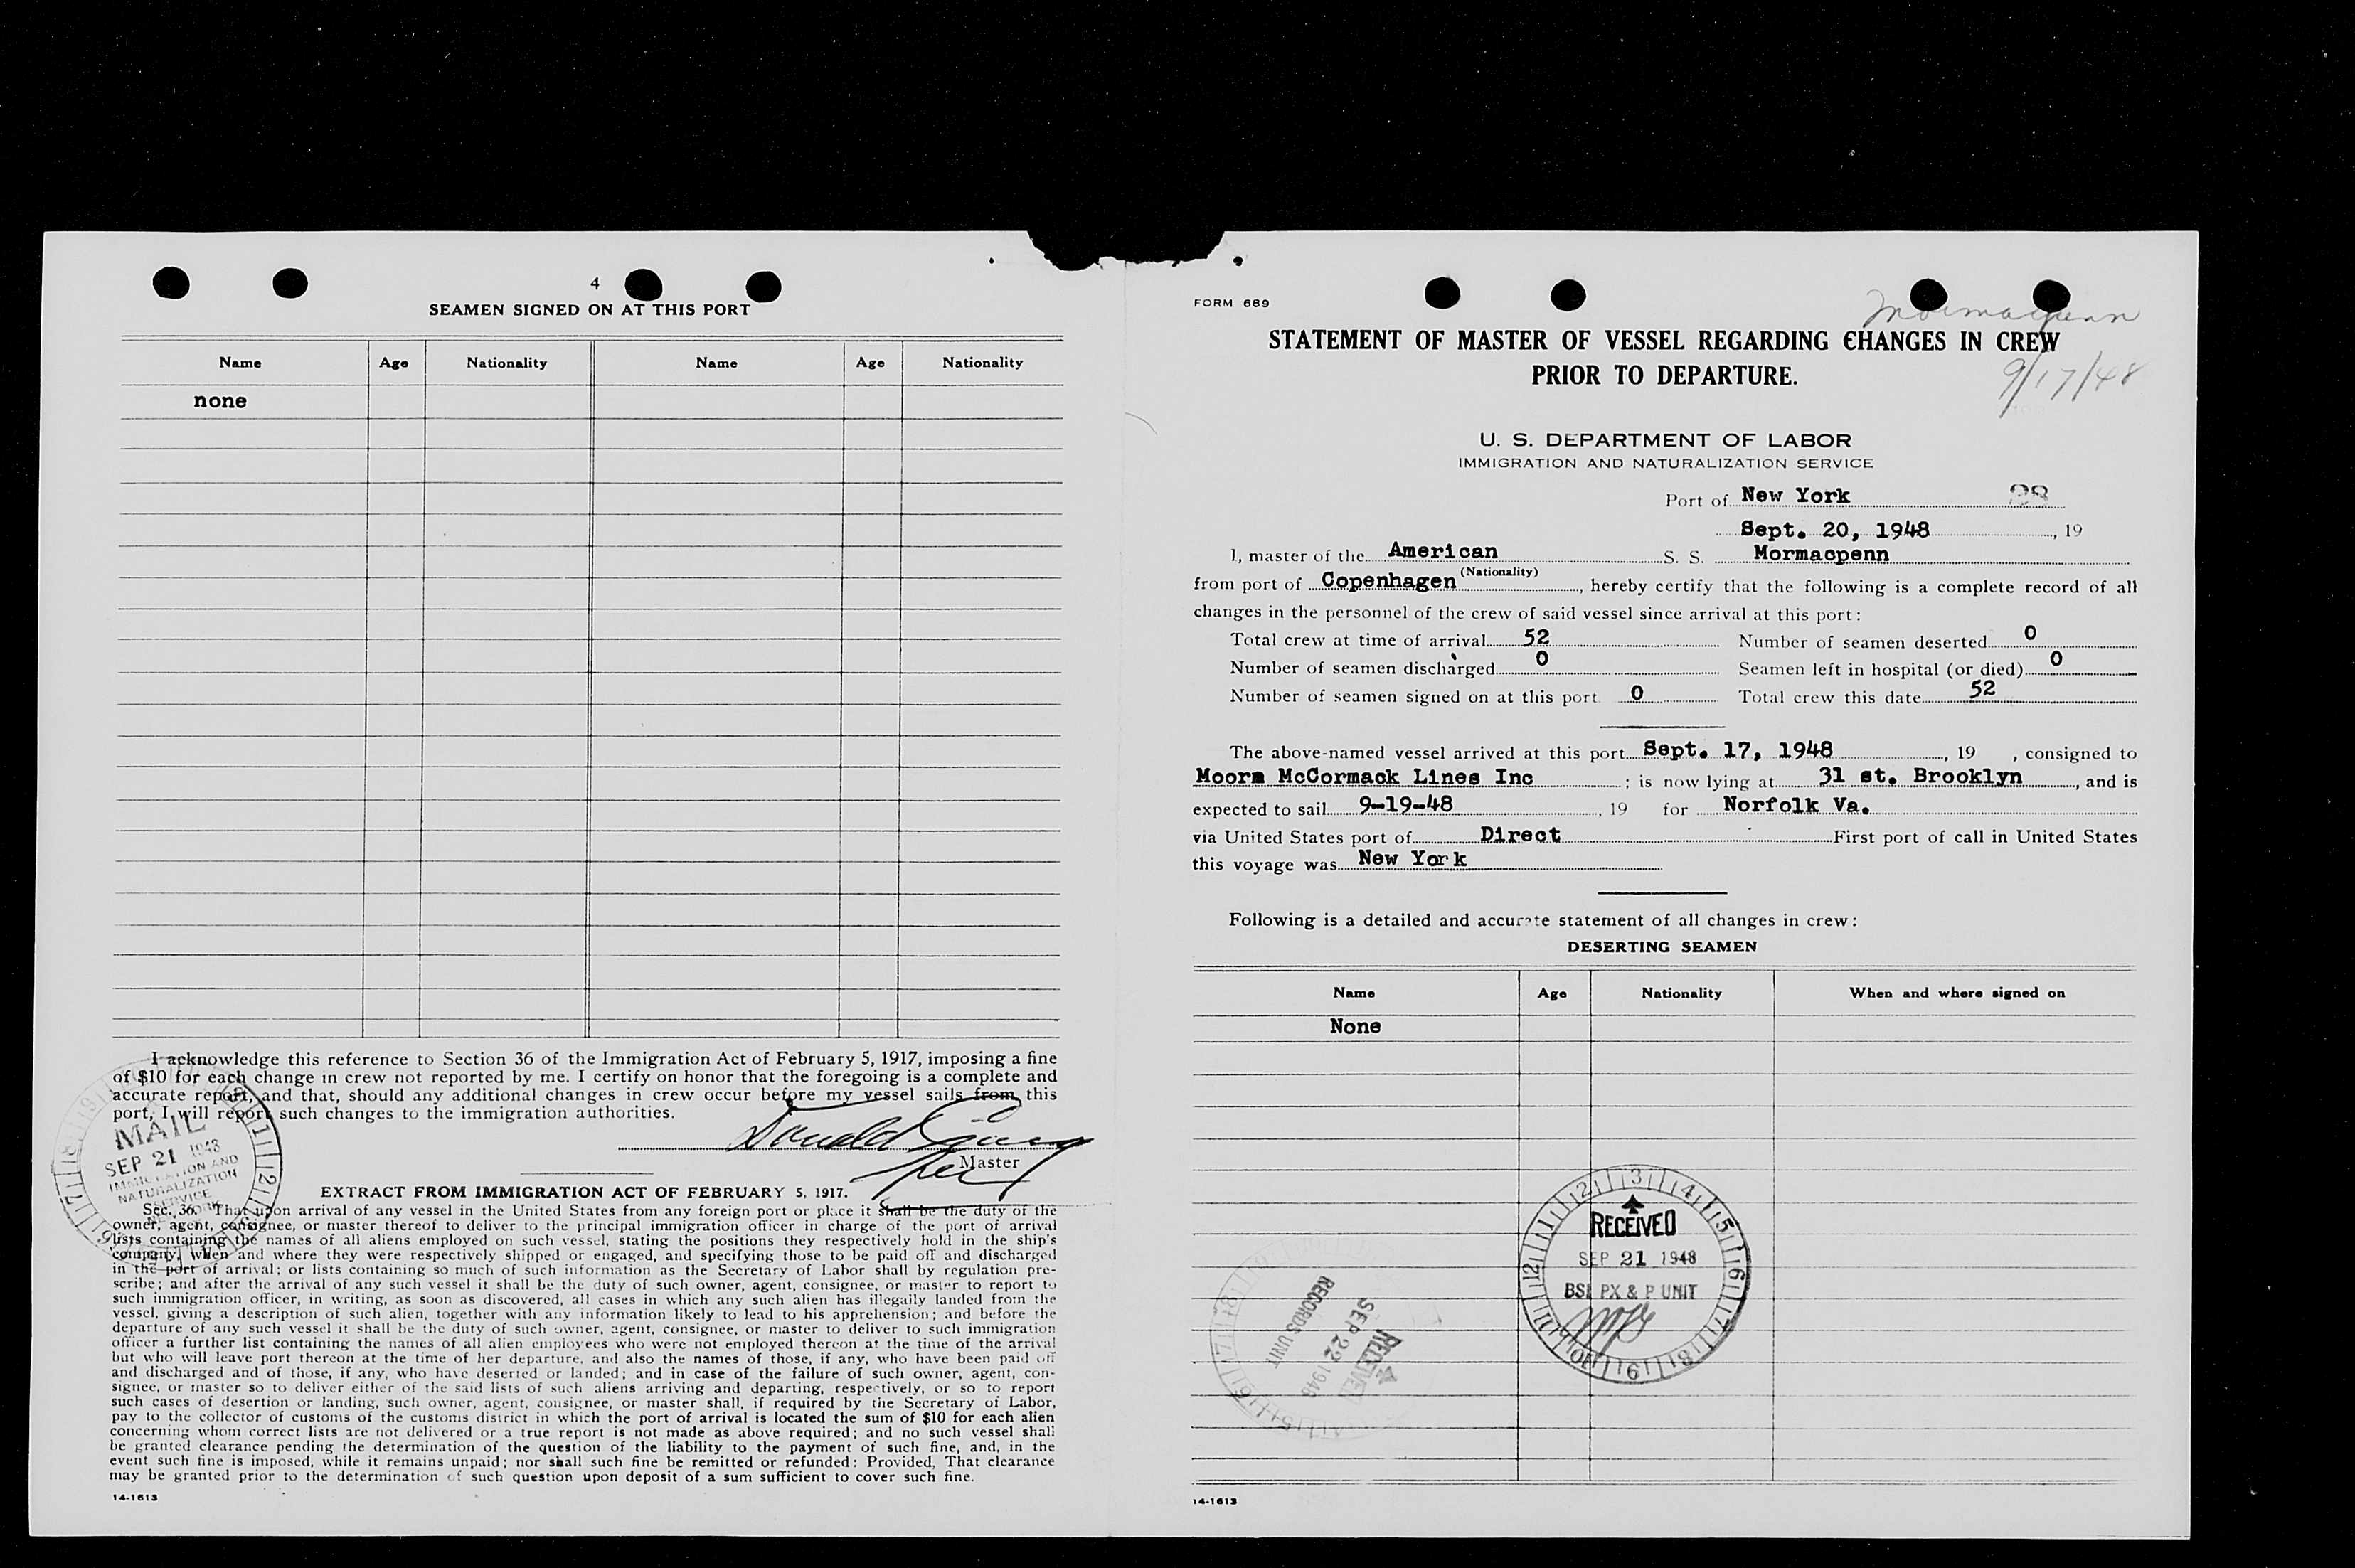 4
SEAMEN SIGNED ON AT THIS PORT
Name Age Nationality Name Age Nationality
none
I acknowledge this reference to Section 36 of the Immigration Act of February 5, 1917, imposing a fine
of $10 for each change in crew not reported by me. I certify on honor that the foregoing is a complete and
accurate report, and that, should any additional changes in crew occur before my vessel sails from this
port, I will report such changes to the immigration authorities.
Donald
Master
MAIL
SEP 21 1948
IMMIGRATION AND
NATURALIZATION
SERVICE
EXTRACT FROM IMMIGRATION ACT OF FEBRUARY 5, 1917.
Sec. 36. That upon arrival of any vessel in the United States from any foreign port or place it shall be the duty of the
owner, agent, consignee, or master thereof to deliver to the principal immigration officer in charge of the port of arrival
lists containing the names of all aliens employed on such vessel, stating the positions they respectively hold in the ship's
company, when and where they were respectively shipped or engaged, and specifying those to be paid off and discharged
in the port of arrival; or lists containing so much of such information as the Secretary of Labor shall by regulation pre-
scribe; and after the arrival of any such vessel it shall be the duty of such owner, agent, consignee, or master to report to
such immigration officer, in writing, as soon as discovered, all cases in which any such alien has illegally landed from the
vessel, giving a description of such alien, together with any information likely to lead to his apprehension; and before the
departure of any such vessel it shall be the duty of such owner, agent, consignee, or master to deliver to such immigration
officer a further list containing the names of all alien employees who were not employed thereon at the time of the arrival
but who will leave port thereon at the time of her departure, and also the names of those, if any, who have been paid off
and discharged and of those, if any, who have deserted or landed; and in case of the failure of such owner, agent, con-
signee, or master so to deliver either of the said lists of such aliens arriving and departing, respectively, or so to report
such cases of desertion or landing, such owner, agent, consignee, or master shall, if required by the Secretary of Labor,
pay to the collector of customs of the customs district in which the port of arrival is located the sum of $10 for each alien
concerning whom correct lists are not delivered or a true report is not made as above required; and no such vessel shall
be granted clearance pending the determination of the question of the liability to the payment of such fine, and, in the
event such fine is imposed, while it remains unpaid; nor shall such fine be remitted or refunded: Provided, That clearance
may be granted prior to the determination of such question upon deposit of a sum sufficient to cover such fine.
14-1613
FORM 689
Mormacpenn
STATEMENT OF MASTER OF VESSEL REGARDING CHANGES IN CREW
PRIOR TO DEPARTURE.
9/17/48
U. S. DEPARTMENT OF LABOR
IMMIGRATION AND NATURALIZATION SERVICE
Port of New York 28
Sept. 20, 1948, 19
I, master of the American S. S. Mormacpenn
(Nationality)
from port of Copenhagen, hereby certify that the following is a complete record of all
changes in the personnel of the crew of said vessel since arrival at this port:
Total crew at time of arrival 52 Number of seamen deserted 0
Number of seamen discharged 0 Seamen left in hospital (or died) 0
Number of seamen signed on at this port 0 Total crew this date 52
The above-named vessel arrived at this port Sept. 17, 1948, 19 , consigned to
Moore McCormack Lines Inc; is now lying at 31 st. Brooklyn, and is
expected to sail 9-19-48, 19 for Norfolk Va.
via United States port of Direct First port of call in United States
this voyage was New York
Following is a detailed and accurate statement of all changes in crew:
DESERTING SEAMEN
Name Age Nationality When and where signed on
None
RECEIVED
SEP 21 1948
BSI PX & P UNIT
RECEIVED
SEP 22 1948
RECORDS UNIT
14-1613